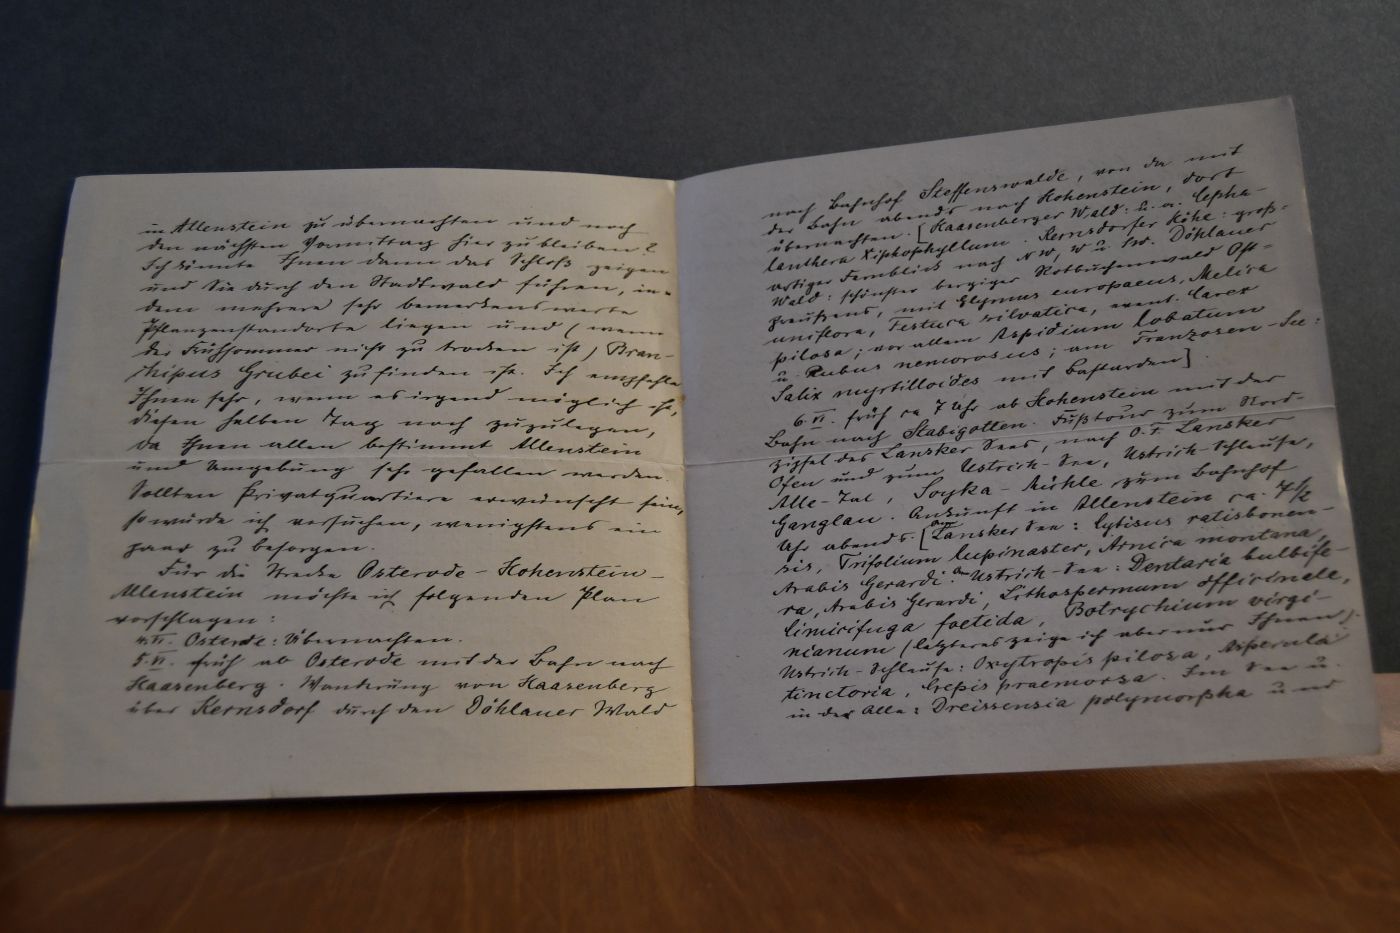 in Allenstein zu übernachten und noch
den nächsten Vormittag hier zu bleiben?
Ich könnte Ihnen dann das Schloß zeigen
und Sie durch den Stadtwald führen, in-
dem mehrere sehr bemerkenswerte
Pflanzenstandorte liegen und (wenn
der Frühsommer nicht zu trocken ist) Bran-
chipus Grubei zu finden ist. Ich empfehle
Ihnen sehr, wenn es irgend möglich ist,
diesen halben Tag noch zuzulegen,
da Ihnen allen bestimmt Allenstein
und Umgebung sehr gefallen werden.
Sollten Privatquartiere erwünscht sein,
so würde ich versuchen, wenigstens ein
paar zu besorgen.
Für die Strecke Osterode - Hohenstein -
Allenstein möchte ich folgenden Plan
vorschlagen:
4.VI. Osterode: Übernachten.
5.VI. früh ab Osterode mit der Bahn nach
Haasenberg. Wanderung von Haasenberg
über Kernsdorf durch den Döhlauer Wald
nach Bahnhof Steffenswalde, von da mit
der Bahn abends nach Hohenstein, dort
übernachten. [Haasenberger Wald: u. a. Cepha-
lanthera Xiphophyllum. Kernsdorfer Höhe: groß-
artiger Fernblick nach NW, W u. SW. Döhlauer
Wald: schönster bergiger Rotbuchenwald Ost-
preußens, mit Elymus europaeus, Melica
uniflora, Festuca silvatica, event. Carex
pilosa; vor allem Aspidium lobatum
u. Rubus nemorosus; am Franzosen-See:
Salix myrtilloides mit Bastarden].
6.VI. früh ca 7 Uhr ab Hohenstein mit der
Bahn nach Stabigotten. Fußtour zum Nord-
zipfel des Lansker Sees, nach O.F. Lansker
Ofen und zum Ustrich-See, Ustrich-Schleuse,
Alle-Tal, Soyka-Mühle zum Bahnhof
Ganglau. Ankunft in Allenstein ca. 7 1/2
Uhr abends. [am Lansker See: Cytisus ratisbonen-
sis, Trifolium lupinaster, Arnica montana,
Arabis Gerardi. am Ustrich-See: Dentaria bulbife-
ra, Arabis Gerardi, Lithospermum officinale,
Cimicifuga foetida, Botrychium virgi-
nianum (letzteres zeige ich aber nur Ihnen).
Ustrich-Schleuse: Oxytropis pilosa, Asperula
tinctoria, Crepis praemorsa. Im See u.
in der Alle: Dreissensia polymorpha und